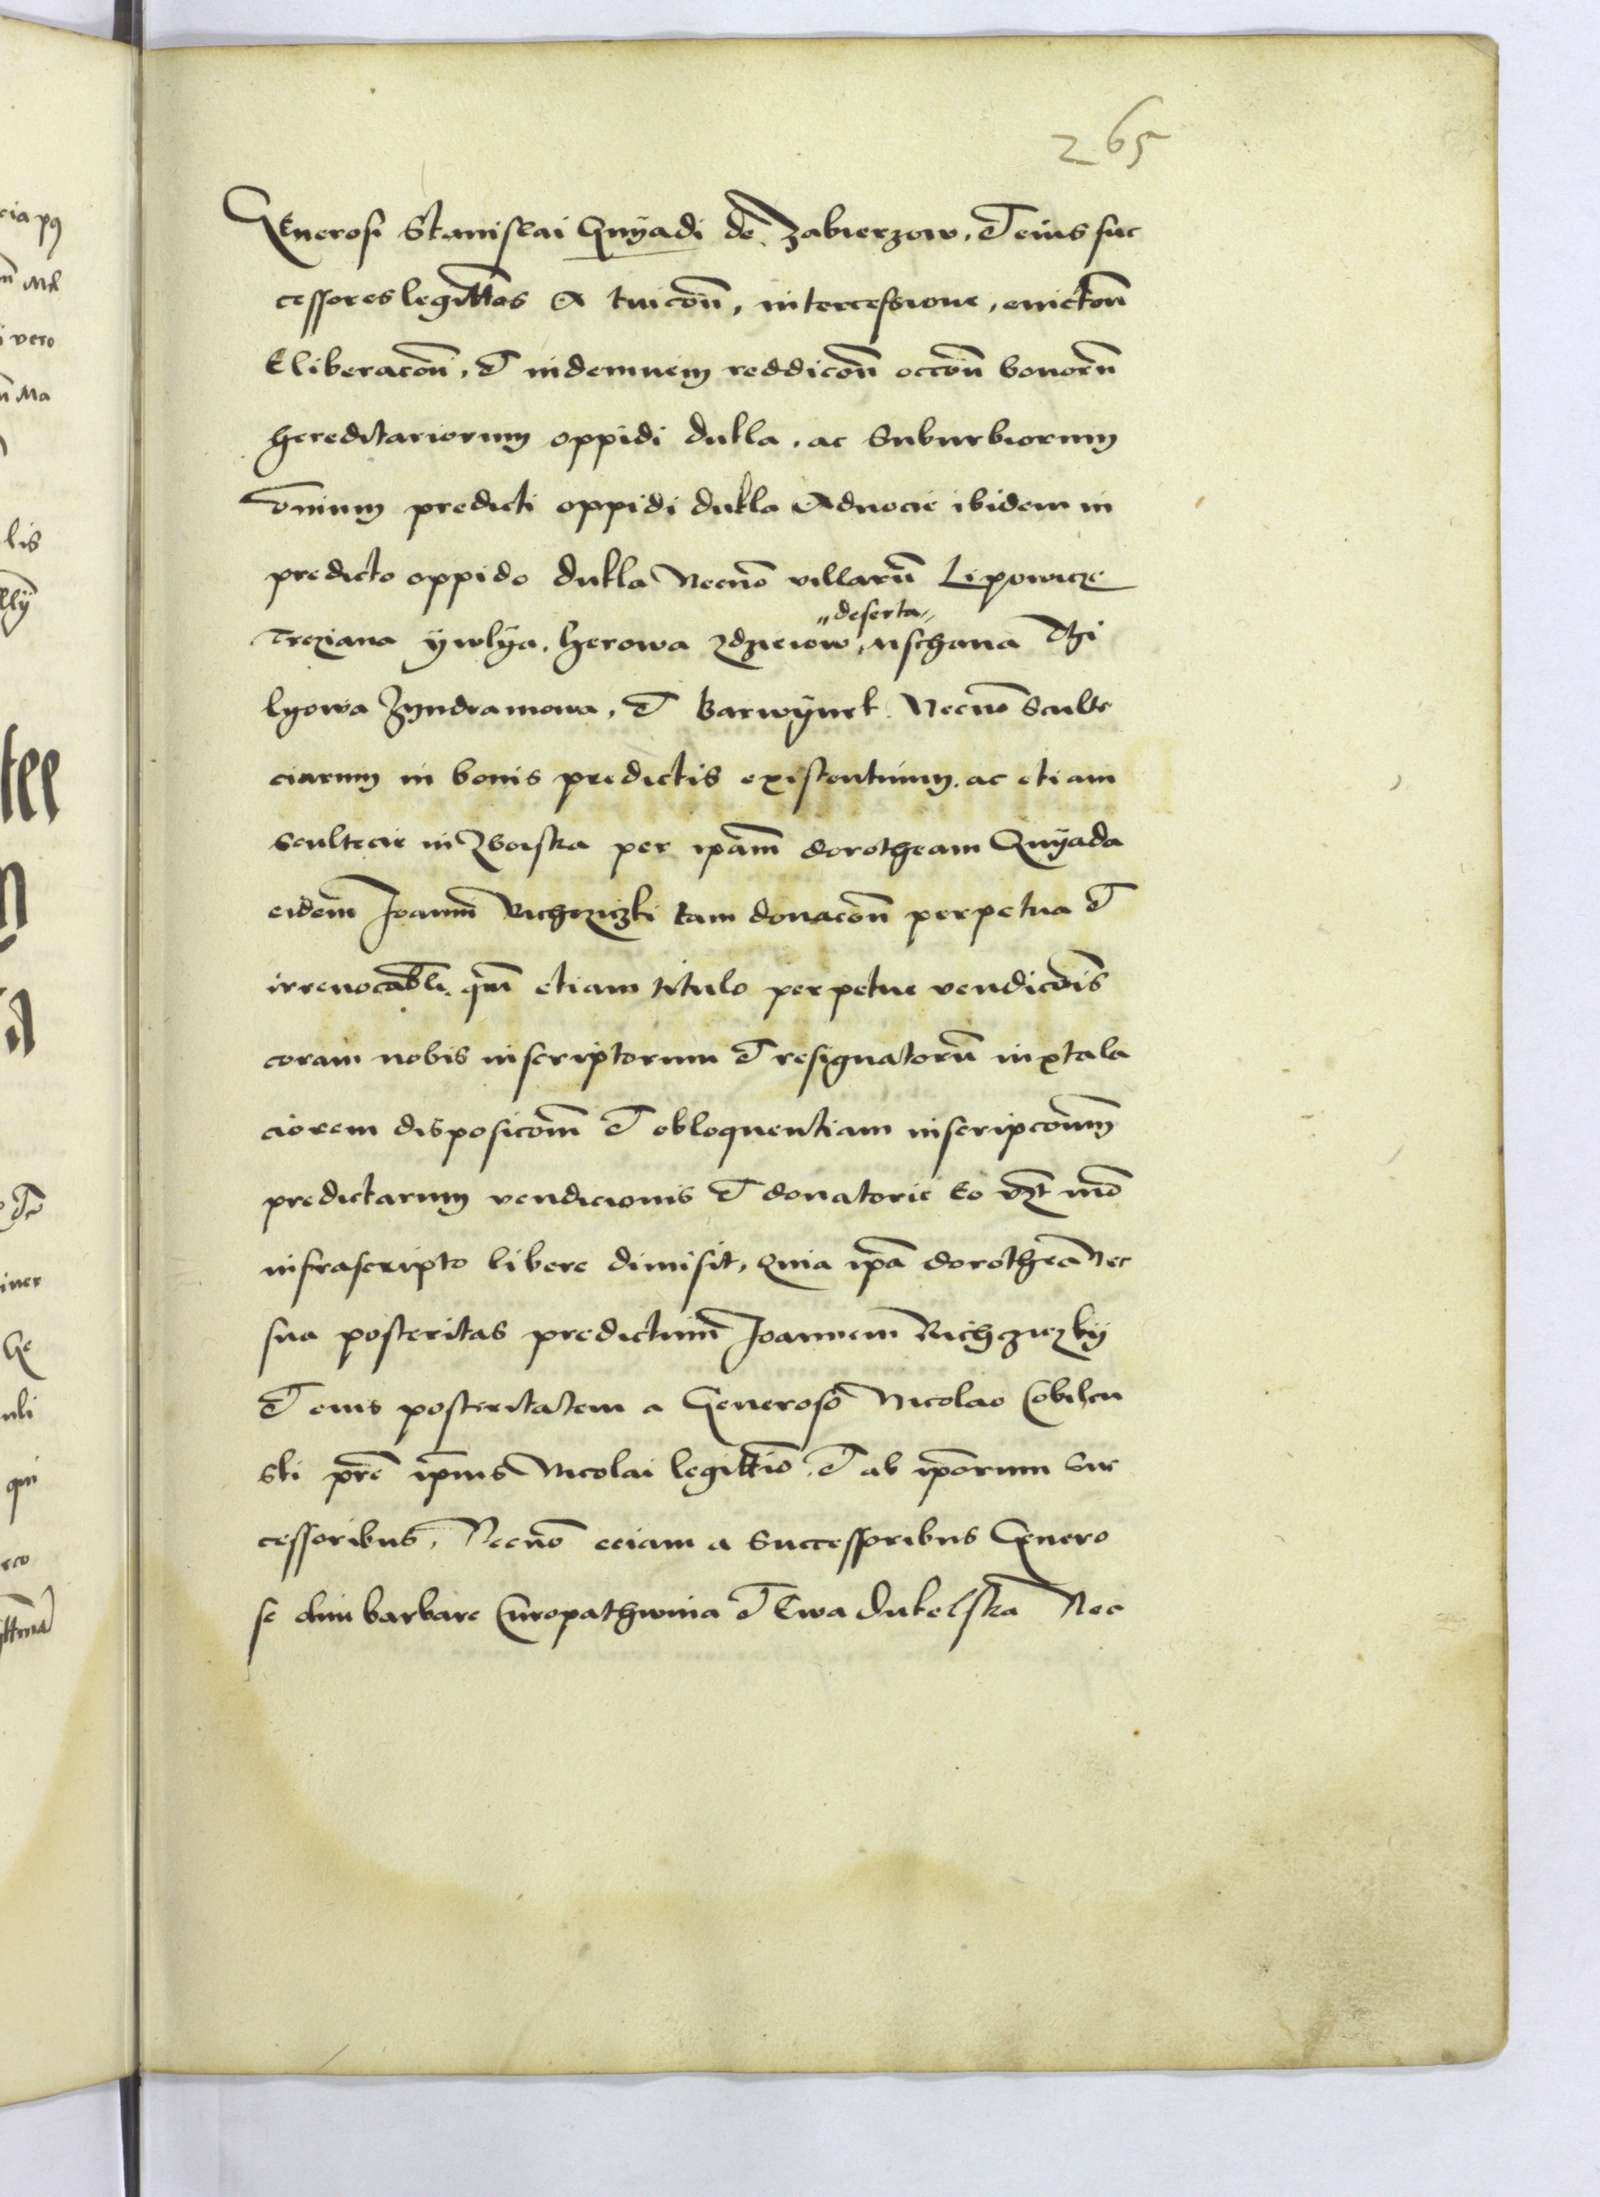 265
Generosi Stanislai Gnÿadi de Zabierzow, & eius suc
cessores legittos A tuicoñ, intercessione, euictoñ
Eliberacoñ, & indemnem reddicoñ occoñ bonorũ
hereditariorum oppidi dukla, ac Suburbiorum
oñium predicti oppidi dukla Aduocie ibidem in
predicto oppido dukla Necnõ villarũ Lipowicze
Trzciana ÿwlÿa, herowa zdzieiow „deserta„ uschana
lyowa Zyndramowa, & Barwÿnek Necnõ Sculte
ciarum in bonis predictis existentium, ac etiam
scultecie in Zboiska per ipam̃ dorotheam Gnÿada
eidem̃ Joanni Richcziczki tam donacoñ perpetua &
irreuocabli, qm̃ etiam titulo perpetue vendicois
coram nobis inscriptorum & resignatorũ iuxta la
ciorem disposicom̃ & obloquentiam inscripconum̃
predictarum vendicionis & donatorie Eo vz̃t mõ
infrascripto libere dimisit, Quia ipã dorothea Nec
sua posteritas predictum̃ Joannem Richcziczkÿ
& eius posteritatem a Generosõ Nicolao Cobilen
ski pr̃e ip̃ius Nicolai legittiõ & ab ip̃orum Suc
cessoribus, Necnõ eciam a Successoribus Genero
se olim barbare Curopathwina & Ewa dukelska Nec